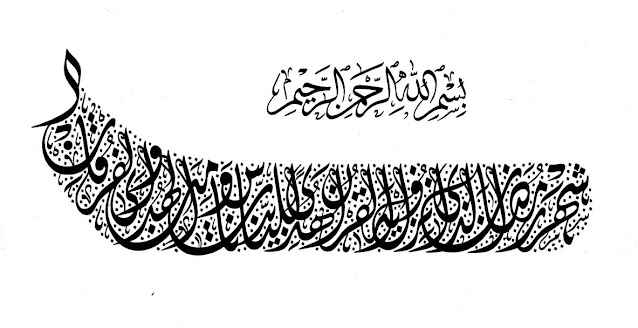 بِسْمِ اللهِ الرَّحْمٰنِ الرَّحِيْمِ
شهر رمضان الذي أنزل فيه القرآن هدى للناس وبينات من الهدى والفرقان